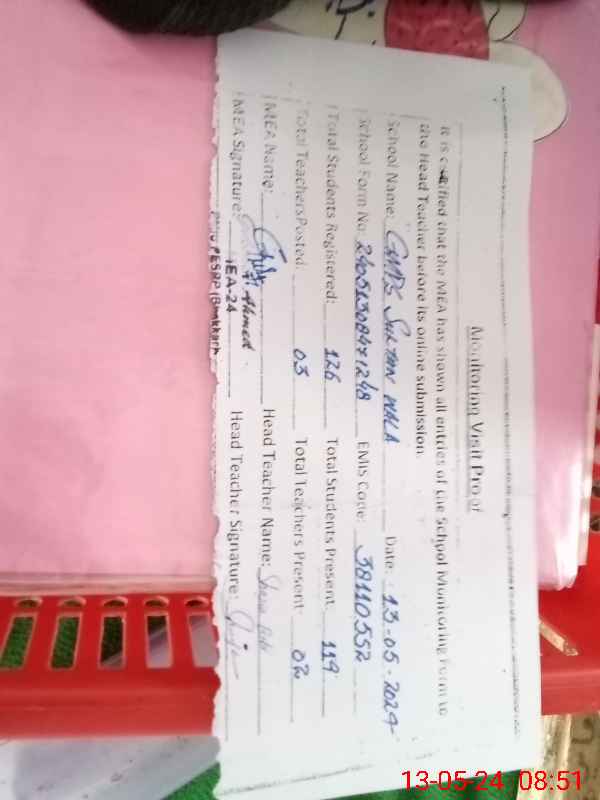 Monitoring Visit Proof
It is certified that the MEA has shown all entries of the School Monitoring Form to
the Head Teacher before its online submission.
School Name: GMPS SULTAN WALA Date: 13-05-2024
School Form No: EMIS Code: 38110552
Total Students Registered: 126 Total Students Present: 119
Total Teachers Posted: 03 Total Teachers Present: 02
MEA Name: Head Teacher Name:
MEA Signature: Ahmed Head Teacher Signature:
MEA-24
PMIU PESRP (Bhakkar)
13-05-24 08:51